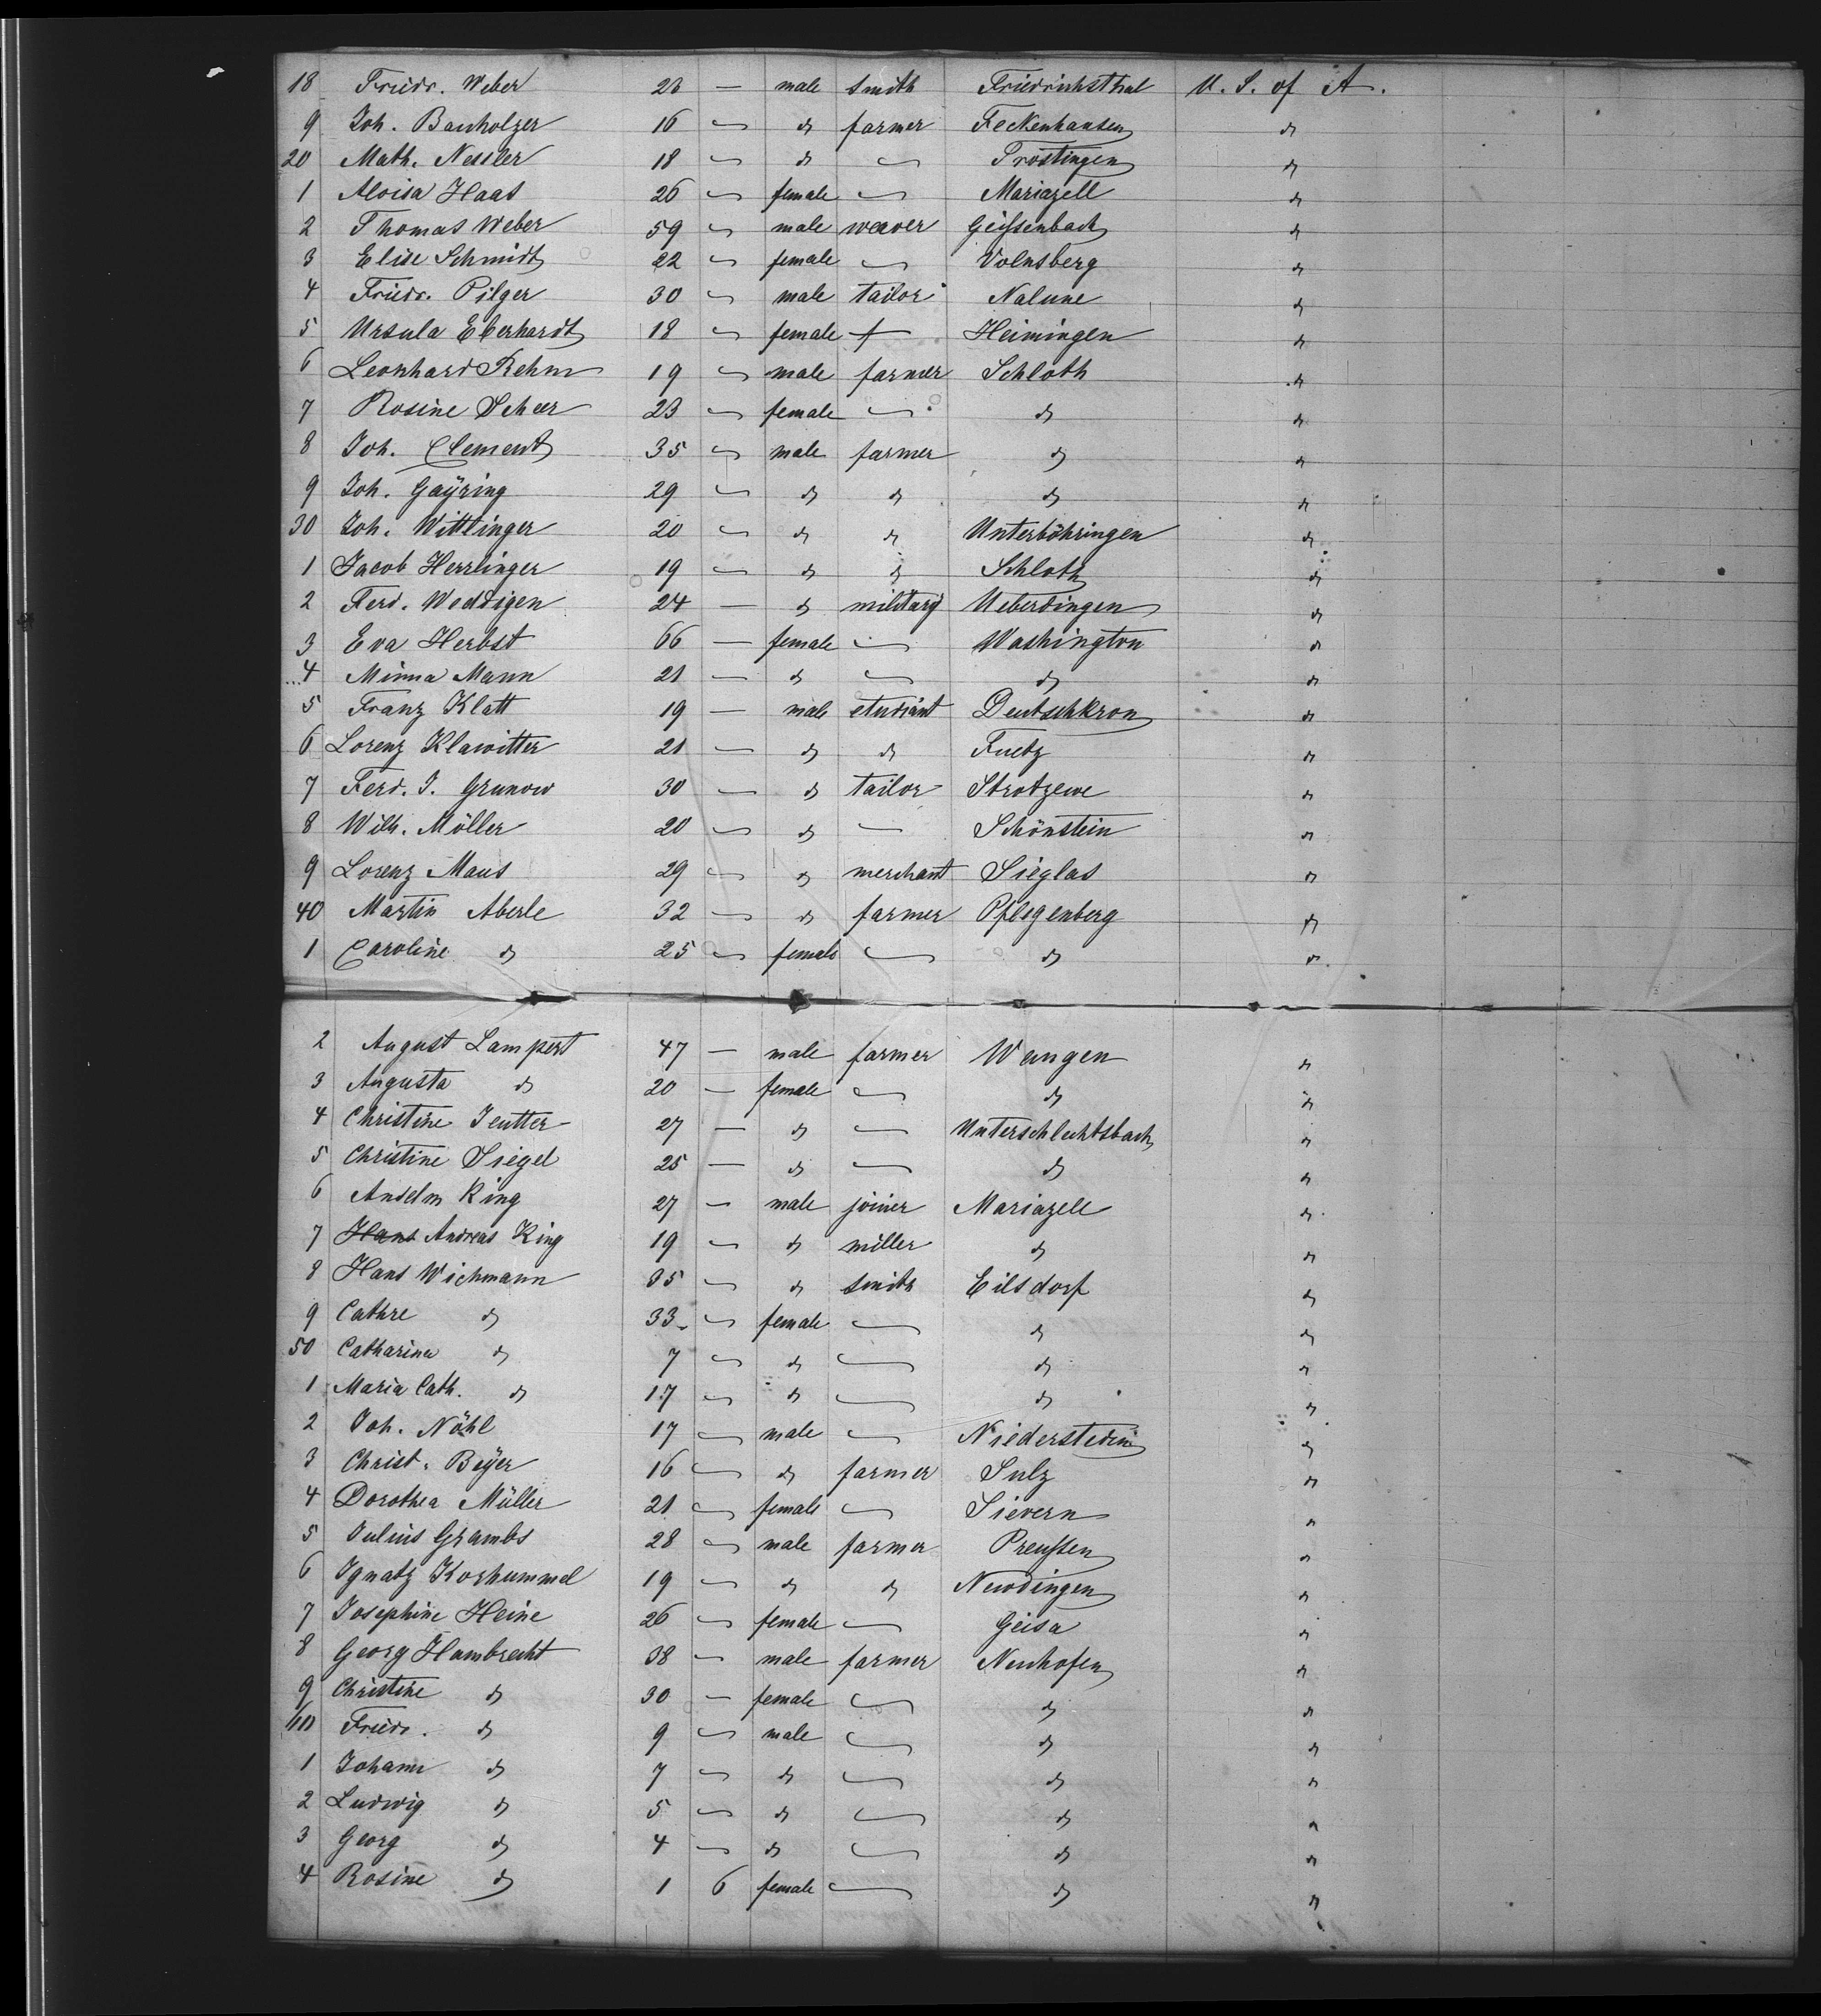 18 Friedr. Weber 23 — male smith Friedrichsthal U. S. of A.
9 Joh. Banholzer 16 — do farmer Feckenhausen do
20 Math. Nessler 18 — do — Trostingen do
1 Aloisa Haas 26 — female — Mariazell do
2 Thomas Weber 59 — male weaver Geißenbach do
3 Elise Schmidt 22 — female — Volnsberg do
4 Friedr. Pilger 30 — male tailor Nalune do
5 Ursula Eberhardt 18 — female — Heimingen do
6 Leonhard Rehm 19 — male farmer Schloth do
7 Rosine Scheer 23 — female — do do
8 Joh. Clement 35 — male farmer do do
9 Joh. Gaÿring 29 — do do do do
30 Joh. Wittlinger 20 — do do Unterböhringen do
1 Jacob Herrlinger 19 — do do Schloth do
2 Ferd. Weddigen 24 — do military Ueberdingen do
3 Eva Herbst 66 — female — Washington do
4 Minna Mann 21 — do — do do
5 Franz Klatt 19 — male etudiant Deutschkron do
6 Lorenz Klawitter 21 — do do do
7 Ferd. J. Grunow 30 — do tailor Strotzewe do
8 Wilh. Möller 20 — do — Schönstein do
9 Lorenz Maus 29 — do merchant Sieglas do
40 Martin Aberle 32 — do farmer Pflegenberg do
1 Caroline do 25 — female — do do
2 August Lampert 47 — male farmer Wangen do
3 Augusta do 20 — female — do do
4 Christine Jeutter 27 — do — Unterschlechtsbach do
5 Christine Siegel 25 — do — do do
6 Anselm King 27 — male joiner Mariazell do
7 Hans Andreas King 19 — do miller do do
8 Hans Wichmann 35 — do smith Eilsdorf do
9 Cathre do 33 — female — do do
50 Catharina do 7 — do — do do
1 Maria Cath. do 17 — do — do do
2 Joh. Nöhl 17 — male — do
3 Christ. Beÿer 16 — do farmer Sulz do
4 Dorothea Müller 21 — female — Sievern do
5 Julius Grambs 28 — male farmer Preußen do
6 Ignatz Korhummel 19 — do do Neudingen do
7 Josephine Heine 26 — female — Geisa do
8 Georg Hambrecht 38 — male farmer Neuhofen do
9 Christine do 30 — female — do do
60 Friedr. do 9 — male — do do
1 Johann do 7 — do — do do
2 Ludwig do 5 — do — do do
3 Georg do 4 — do — do do
4 Rosine do 1 6 female — do do